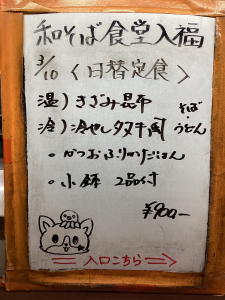 和そば食堂入福
3/10 〈日替定食〉
温)きざみ昆布
そば・うどん
冷)冷やしタヌキ
・かつおふりかけごはん
・小鉢 2品付
¥900-
入口こちら